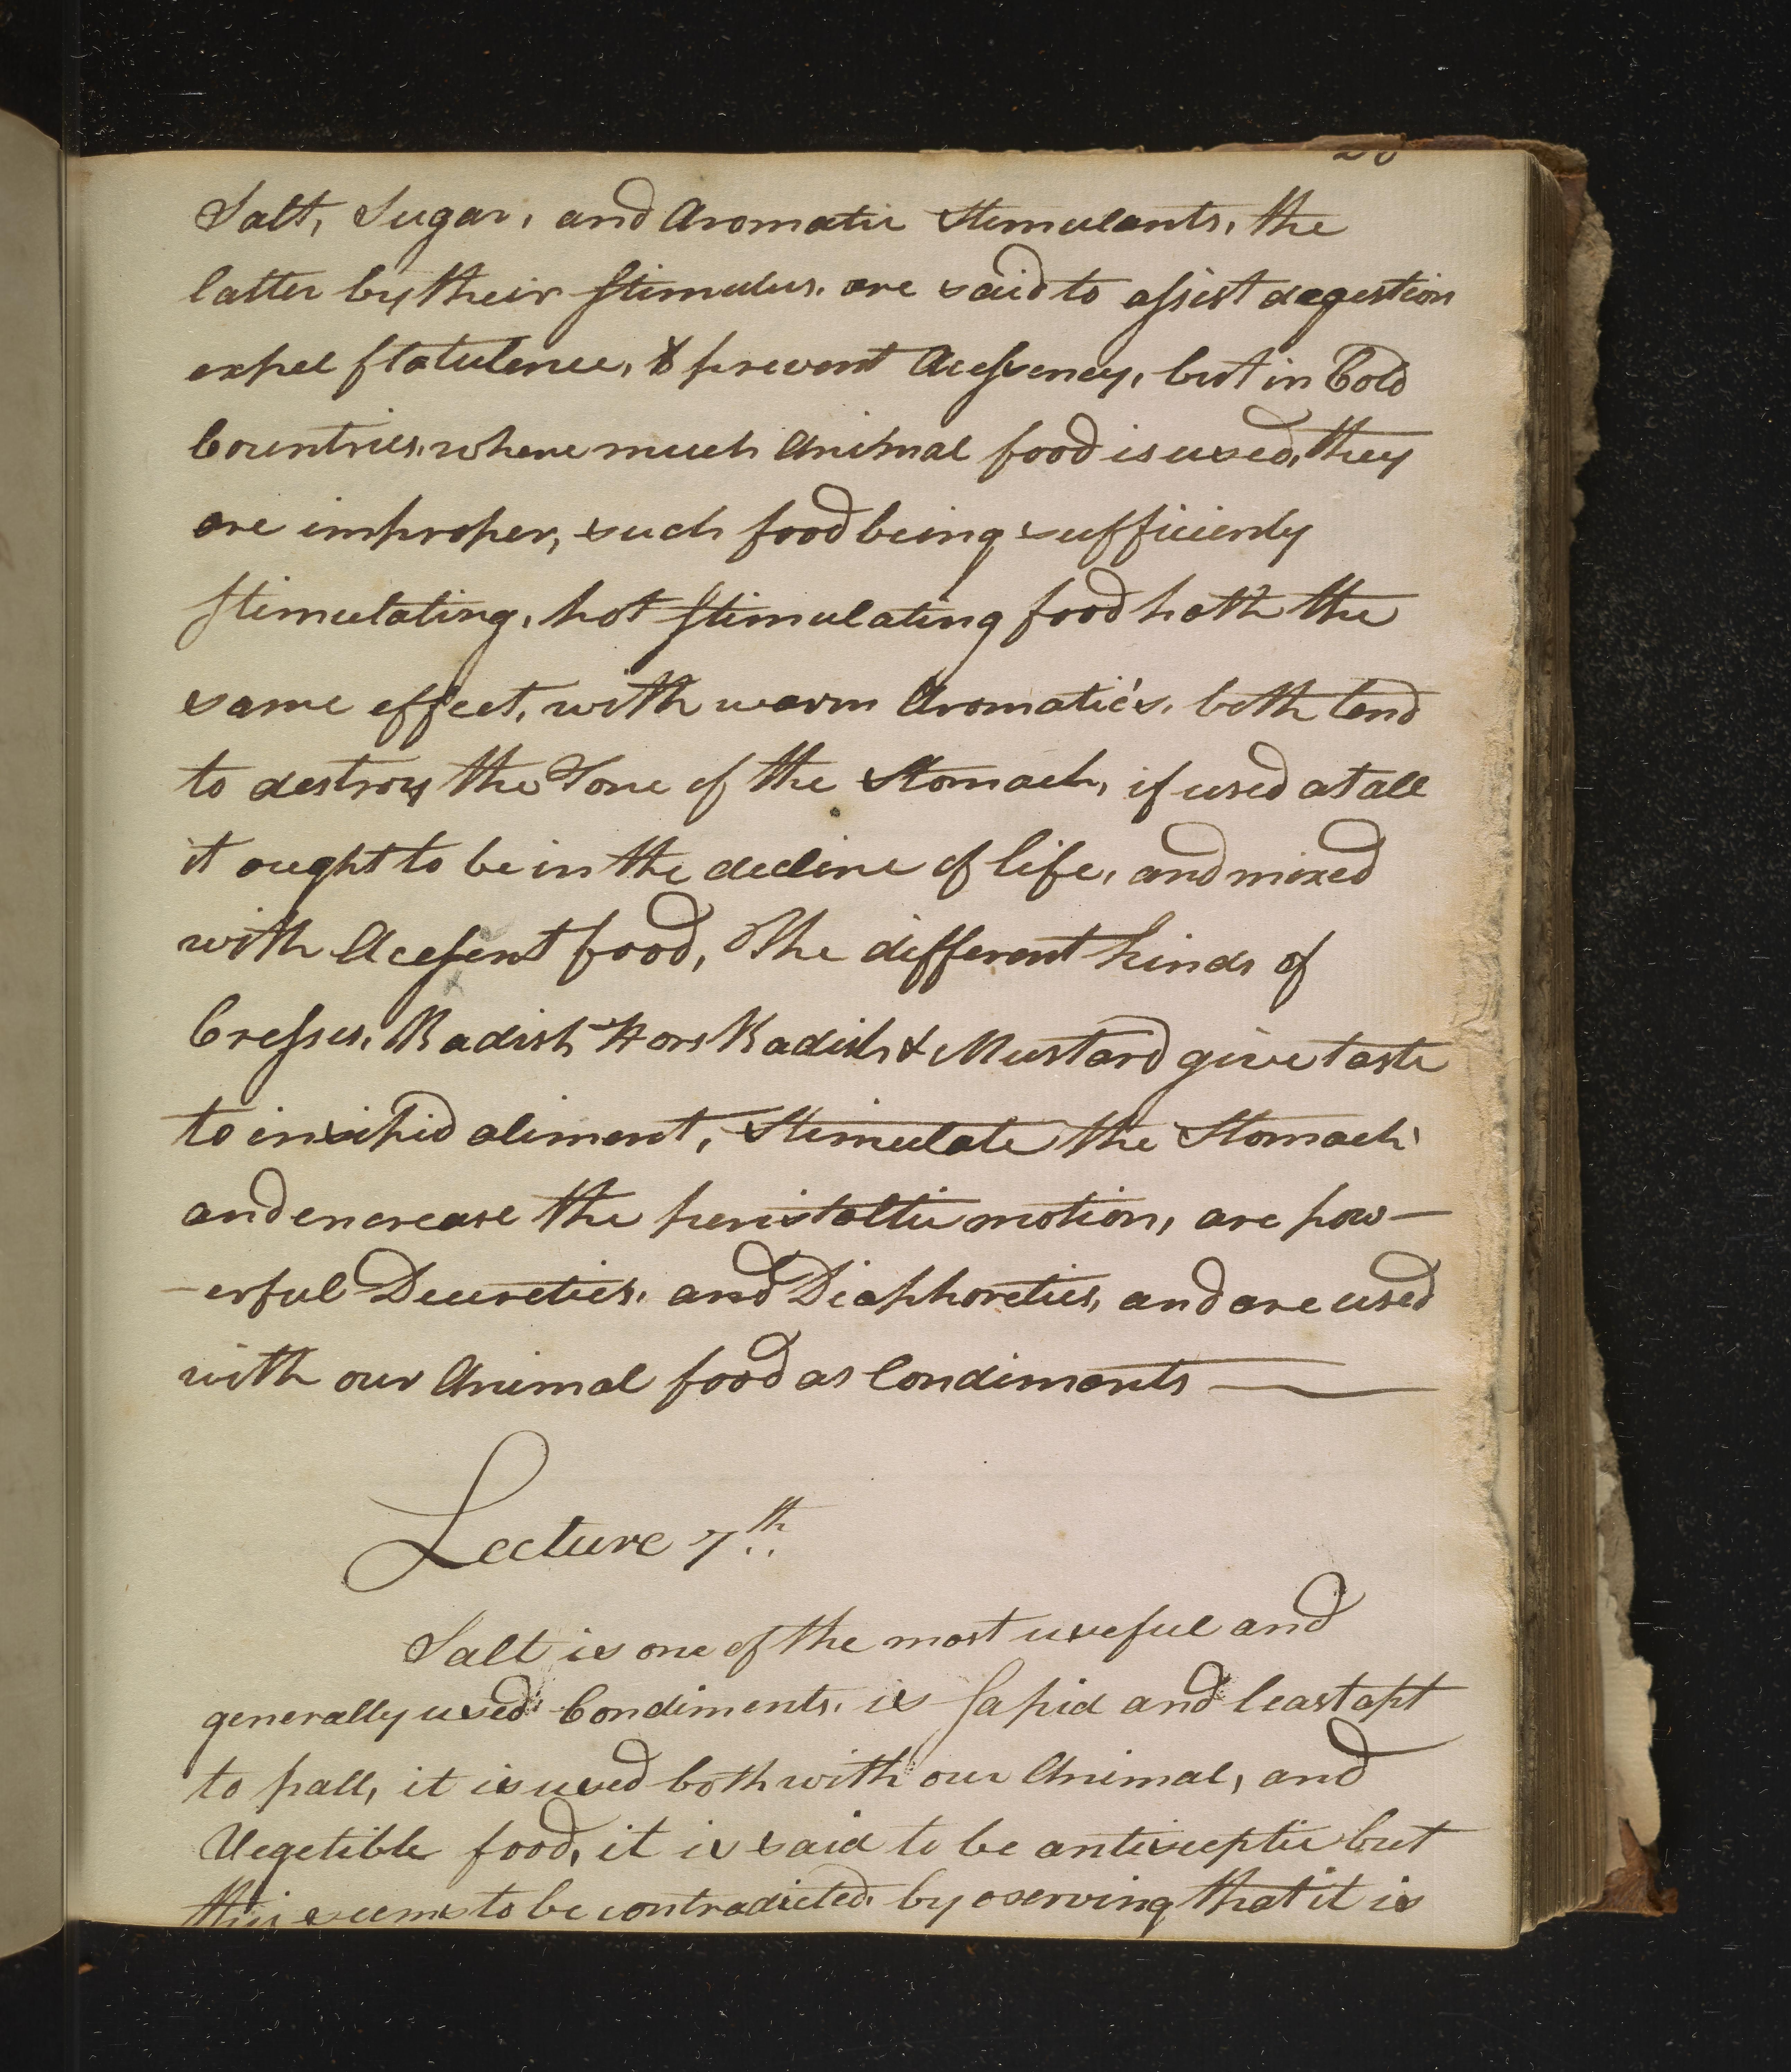 Salt, Sugar, and Aromatic Stemulants, the
latter by their stimulus, are said to assist degestion
expel flatulence, & prevent Acessency, but in Cold
Countries, where much Animal food is used, they
are improper, such food being sufficiently
stimulating, hot stimulating food hath the
same effect, with warm Aromatic's, both tend
to destroy the Tone of the Stomach, if used at all
it ought to be in the decline of life, and mixed
with Acessent food, The different kinds of
Cresses, Radish Hors Radish & Mustard give taste
to insipid aliment, Stimulate the Stomach
and encrease the peristaltic motion, are pow—
—erful Deuretics, and Diaphoretics, and are used
with our Animal food as Condiments ——
Lecture 7th
Salt is one of the most useful and
generally used Condiments, is sapid and least apt
to pall, it is used both with our Animal, and
Vegetible food, it is said to be antiseptic but
this seems to be contradicted, by oserving that it is